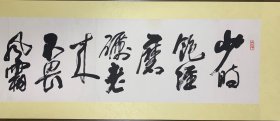 少时
饱经
磨
砺老
来
不畏
风霜